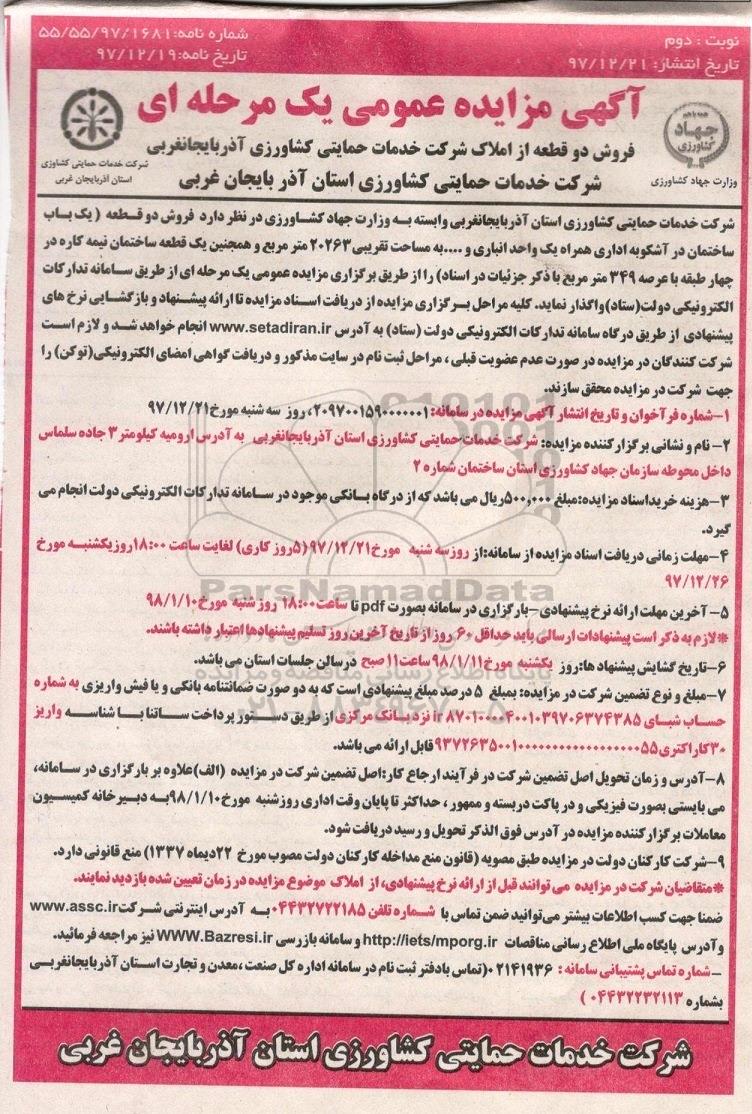 نوبت : دوم
تاریخ انتشار: ۹۷/۱۲/۲۱
شماره نامه: ۵۵/۵۵/۹۷/۱۶۸۱
تاریخ نامه: ۹۷/۱۲/۱۹
جهاد
کشاورزی
وزارت جهاد کشاورزی
آگهی مزایده عمومی یک مرحله ای
فروش دو قطعه از املاک شرکت خدمات حمایتی کشاورزی آذربایجانغربی
شرکت خدمات حمایتی کشاورزی استان آذربایجان غربی
شرکت خدمات حمایتی کشاوزی
استان آذربایجان غربی
شرکت خدمات حمایتی کشاورزی استان آذربایجانغربی وابسته به وزارت جهاد کشاورزی در نظر دارد فروش دو قطعه (یک باب
ساختمان در آشکوبه اداری همراه یک واحد انباری و ....به مساحت تقریبی۲۰۲۶۳ متر مربع و همچنین یک قطعه ساختمان نیمه کاره در
چهار طبقه با عرصه ۳۴۹ متر مربع با ذکر جزئیات در اسناد) را از طریق برگزاری مزایده عمومی یک مرحله ای از طریق سامانه تدارکات
الکترونیکی دولت(ستاد)واگذار نماید. کلیه مراحل برگزاری مزایده از دریافت اسناد مزایده تا ارائه پیشنهاد و بازگشایی نرخ های
پیشنهادی از طریق درگاه سامانه تدارکات الکترونیکی دولت (ستاد) به آدرس www.setadiran.ir انجام خواهد شد و لازم است
شرکت کنندگان در مزایده در صورت عدم عضویت قبلی ، مراحل ثبت نام در سایت مذکور و دریافت گواهی امضای الکترونیکی(توکن) را
جهت شرکت در مزایده محقق سازند.
۱-شماره فرآخوان و تاریخ انتشار آگهی مزایده در سامانه: ۲۰۹۷۰۰۱۵۹۰۰۰۰۰۰۱، روز سه شنبه مورخ ۹۷/۱۲/۲۱
۲- نام و نشانی برگزار کننده مزایده: شرکت خدمات حمایتی کشاورزی استان آذربایجانغربی به آدرس ارومیه کیلومتر۳ جاده سلماس
داخل محوطه سازمان جهاد کشاورزی استان ساختمان شماره ۲
۳-هزینه خرید اسناد مزایده:مبلغ ۵۰۰,۰۰۰ریال می باشد که از درگاه بانکی موجود در سامانه تدارکات الکترونیکی دولت انجام می
گیرد.
۴-مهلت زمانی دریافت اسناد مزایده از سامانه:از روزسه شنبه مورخ۹۷/۱۲/۲۱(۵روز کاری) لغایت ساعت ۱۸:۰۰روزیکشنبه مورخ
۹۷/۱۲/۲۶
۵- آخرین مهلت ارائه نرخ پیشنهادی-بارگزاری در سامانه بصورت pdf تا ساعت۱۸:۰۰ روز شنبه مورخ ۹۸/۱/۱۰
*لازم به ذکر است پیشنهادات ارسالی باید حداقل ۶۰ روز از تاریخ آخرین روز تسلیم پیشنهادها اعتبار داشته باشند.
۶-تاریخ گشایش پیشنهاد ها:روز یکشنبه مورخ۹۸/۱/۱۱ساعت۱۱صبح درسالن جلسات استان می باشد.
۷-مبلغ و نوع تضمین شرکت در مزایده: بمبلغ ۵ درصد مبلغ پیشنهادی است که به دو صورت ضمانتنامه بانکی و یا فیش واریزی به شماره
حساب شبای ir ۸۷۰۱۰۰۰۰۴۰۰۱۰۳۹۷۰۶۳۷۴۳۸۵ نزد بانک مرکزی از طریق دستور پرداخت ساتنا با شناسه واریز
قابل ارائه می باشد.
۸-آدرس و زمان تحویل اصل تضمین شرکت در فرآیند ارجاع کار:اصل تضمین شرکت در مزایده (الف)علاوه بر بارگزاری در سامانه،
می بایستی بصورت فیزیکی و در پاکت دربسته و ممهور ، حداکثر تا پایان وقت اداری روزشنبه مورخ۹۸/۱/۱۰به دبیرخانه کمیسیون
معاملات برگزار کننده مزایده در آدرس فوق الذکر تحویل و رسید دریافت شود.
۹-شرکت کارکنان دولت در مزایده طبق مصوبه (قانون منع مداخله کارکنان دولت مصوب مورخ ۲۲دیماه ۱۳۳۷) منع قانونی دارد.
*متقاضیان شرکت در مزایده می توانند قبل از ارائه نرخ پیشنهادی، از املاک موضوع مزایده در زمان تعیین شده بازدید نمایند.
ضمنا جهت کسب اطلاعات بیشتر می‌توانید ضمن تماس با شماره تلفن ۰۴۴۳۲۷۲۲۱۸۵به آدرس اینترنتی شرکتwww.assc.ir
و آدرس پایگاه ملی اطلاع رسانی مناقصات http://iets/mporg.ir و سامانه بازرسی WWW.Bazresi.ir نیز مراجعه فرمائید.
-شماره تماس پشتیبانی سامانه : ۰۲۱۴۱۹۳۶(تماس بادفتر ثبت نام در سامانه اداره کل صنعت ،معدن و تجارت استان آذربایجانغربی
بشماره ۰۴۴۳۲۲۳۲۱۱۳ )
شرکت خدمات حمایتی کشاورزی استان آذربایجان غربی
ParsNamadData